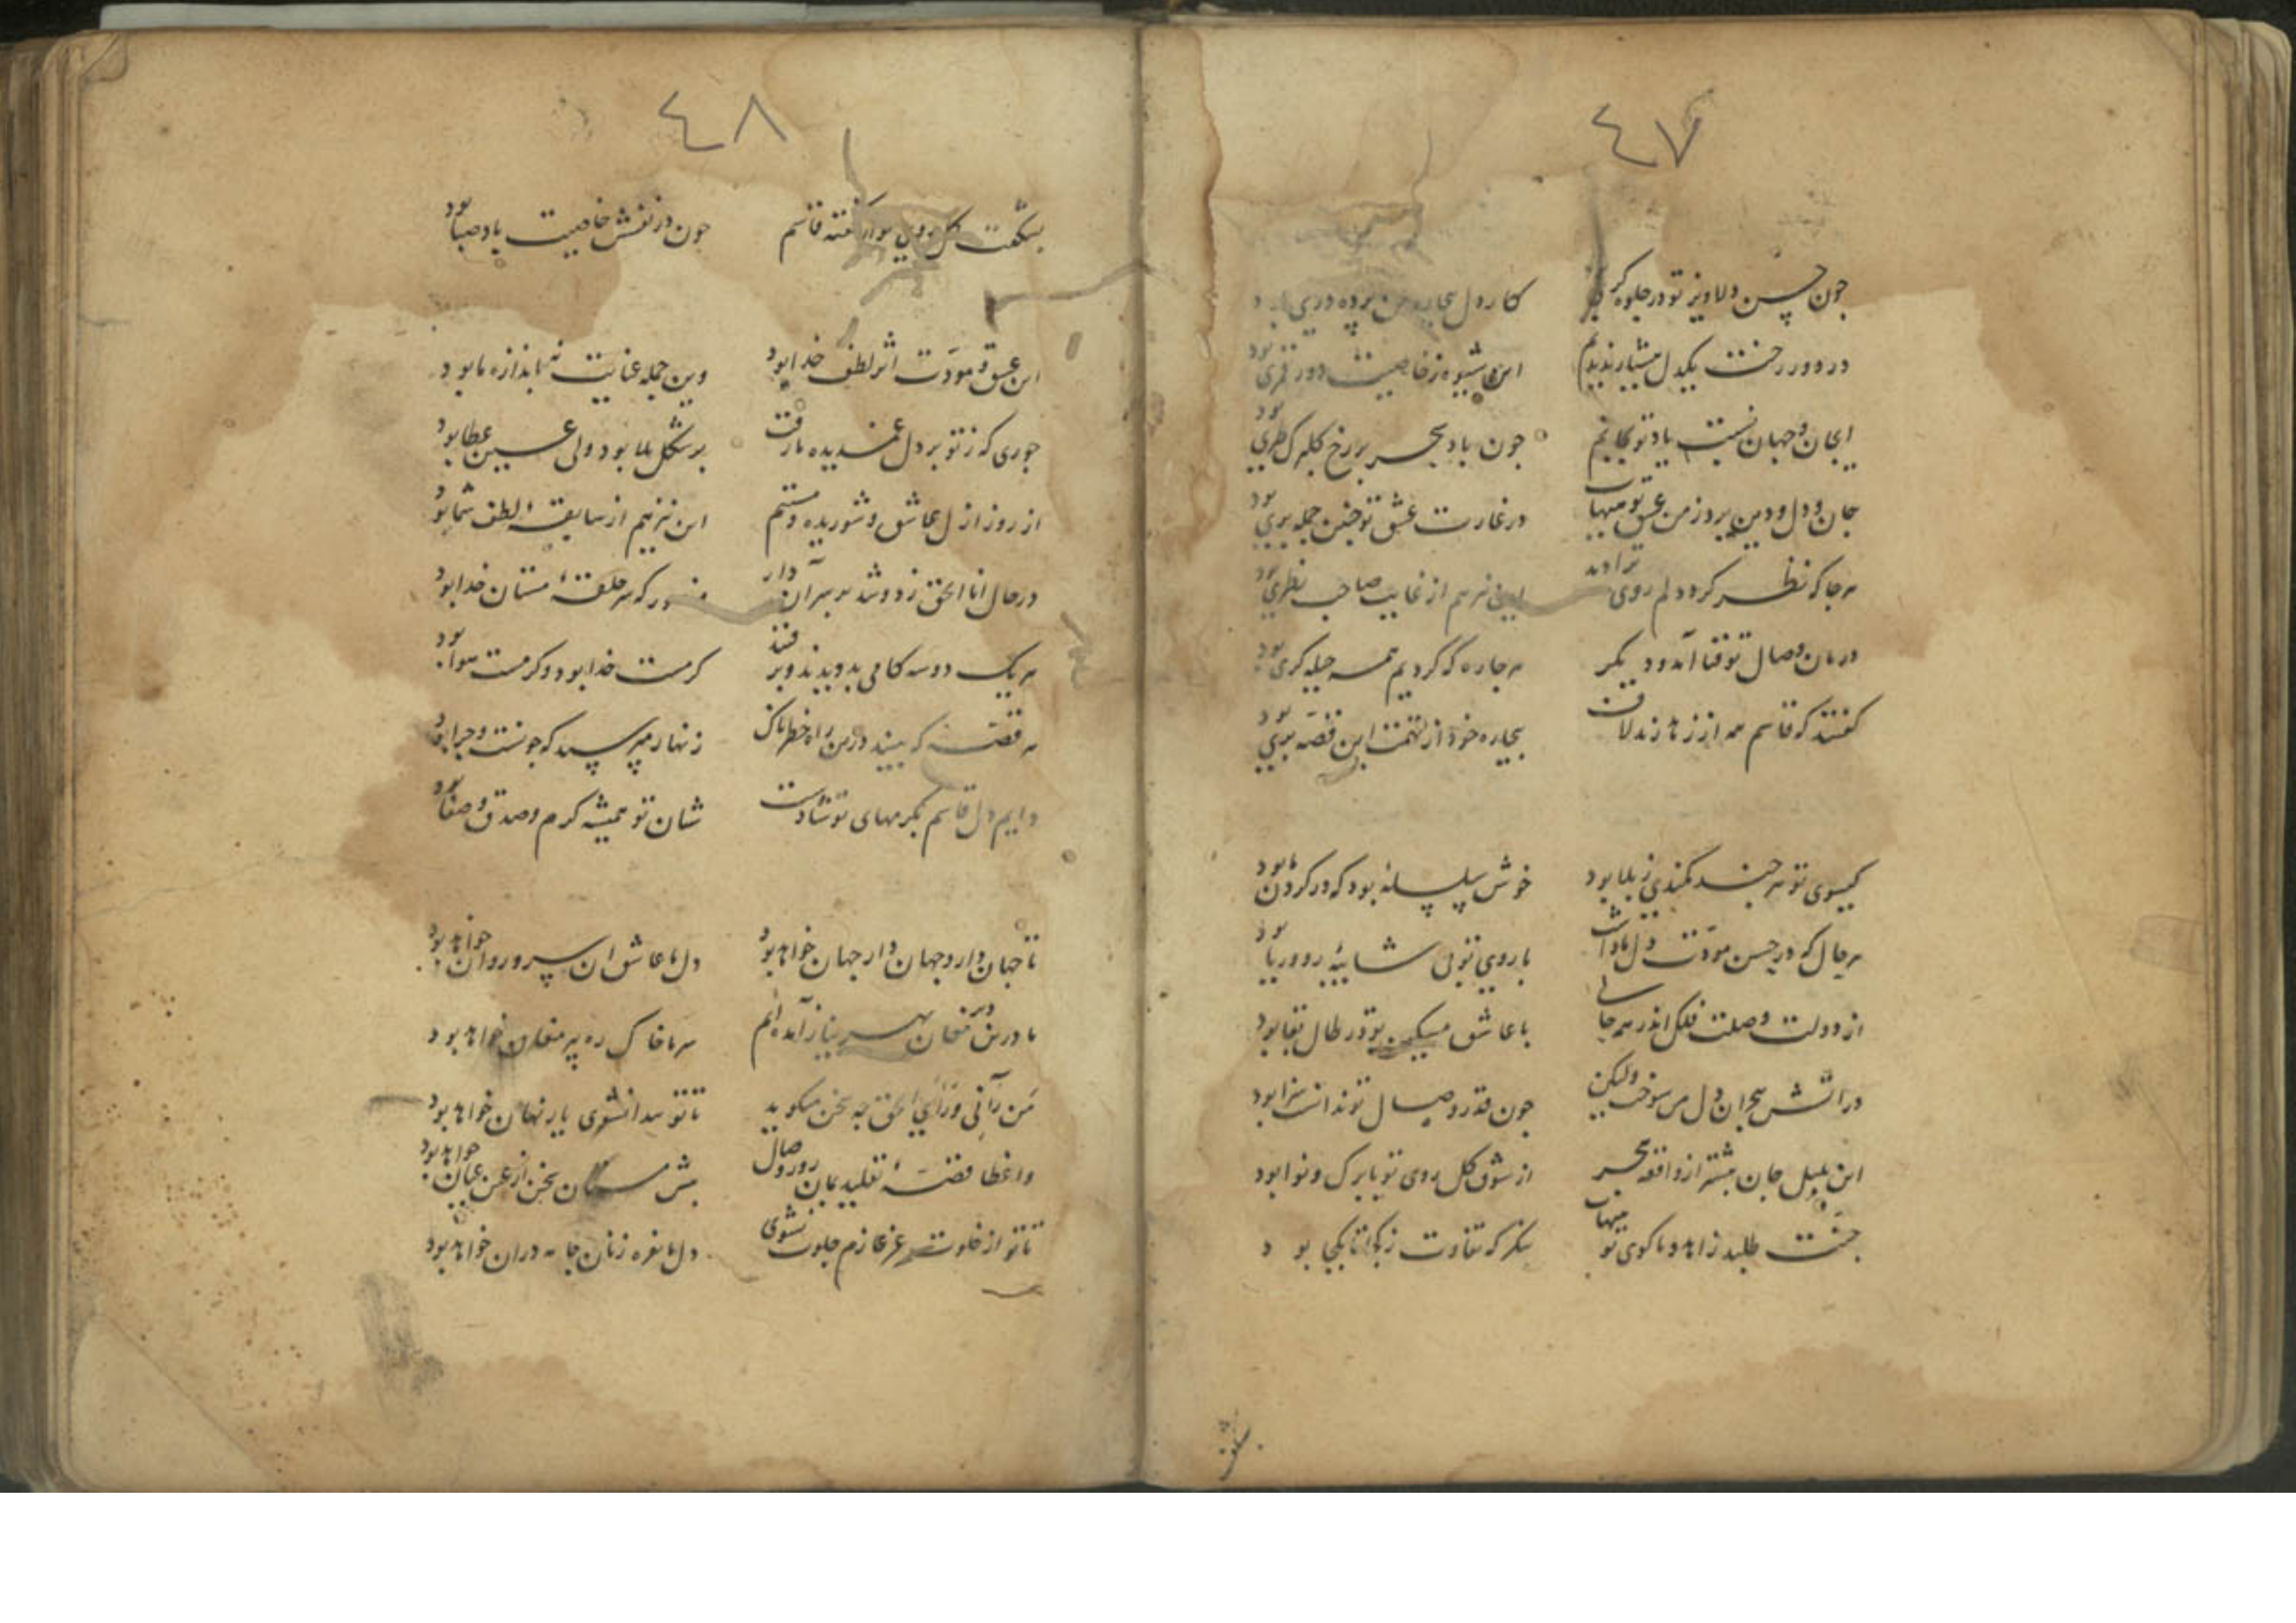 ٤٧
چون حسن دلاویز تو در جلوه‌گری بود
کار دل بیچاره من پرده دری بود
در دور رخت یکدل هشیار ندیدیم
این شیوه ز خاصیت دور قمری بود
ای جان و جهان نسبت یاد تو بجانم
چون باد سحر بر رخ گلبرگ طری بود
جان و دل و دین برد ز من عشق تو هیهات
در غارت عشق تو چنین جمله بری بود
هر جا که نظر کرد دلم روی ترا دید
این نیز هم از غایت صاحب نظری بود
درمان وصال تو فنا آمد و دیگر
هر چاره که کردیم همه حیله گری بود
گفتند که قاسم همه از زهد زند لاف
بیچاره خود از تهمت این قصه بری بود
گیسوی تو هر چند کمندی ز بلا بود
خوش سلسله بود که در گردن ما بود
هر حال که در حسن مودت دل ما داشت
با روی تو بی شایبه رو و ریا بود
از دولت وصلت فلک اندر همه جایی
با عاشق مسکین تو در طال بقا بود
در آتش هجران دل من سوخت ولیکن
چون قدر وصال تو ندانست سزا بود
این بلبل جان پیشتر از واقعه هجر
از شوق گل روی تو با برگ و نوا بود
جنت طلبد زاهد و ما کوی تو هیهات
بنگر که تفاوت ز کجا تا بکجا بود
بشکفت
٤٨
بشکفت گل روی تو از گفته قاسم
چون در نفسش خاصیت باد صبا بود
این عشق و مودت اثر لطف خدا بود
وین جمله عنایت نه باندازه ما بود
جوری که ز تو بر دل غمدیده ما رفت
بر شکل بلا بود ولی عین عطا بود
از روز ازل عاشق و شوریده و مستم
این نیز هم از سابقه لطف شما بود
در حال انا الحق زد و شد بر سر آن دار
منصور که سر حلقه مستان خدا بود
هر یک دو سه گامی بدویدند و برفتند
کرمت خدا بود و کرمت سوا بود
هر قصه که بینند درین راه خطرناک
زنهار مپرسید که چونست و چرا بود
دایم دل قاسم بکرمهای تو شادست
شان تو همیشه کرم و صدق و صفا بود
تا جهان دار و جهان دار جهان خواهد بود
دل ما عاشق آن سرو روان خواهد بود
ما درین دیر مغان بهر نیاز آمده‌ایم
سر ما خاک ره پیر مغان خواهد بود
من رآنی و رأی الحق چه سخن میگوید
تا تو پیدا نشوی یار نهان خواهد بود
واعظا قصه تقلید بمان روز وصال
پیش مستان سخن از عین عیان خواهد بود
تا تو از خلوت عز عازم جلوت نشوی
دل ما نعره زنان جامه دران خواهد بود